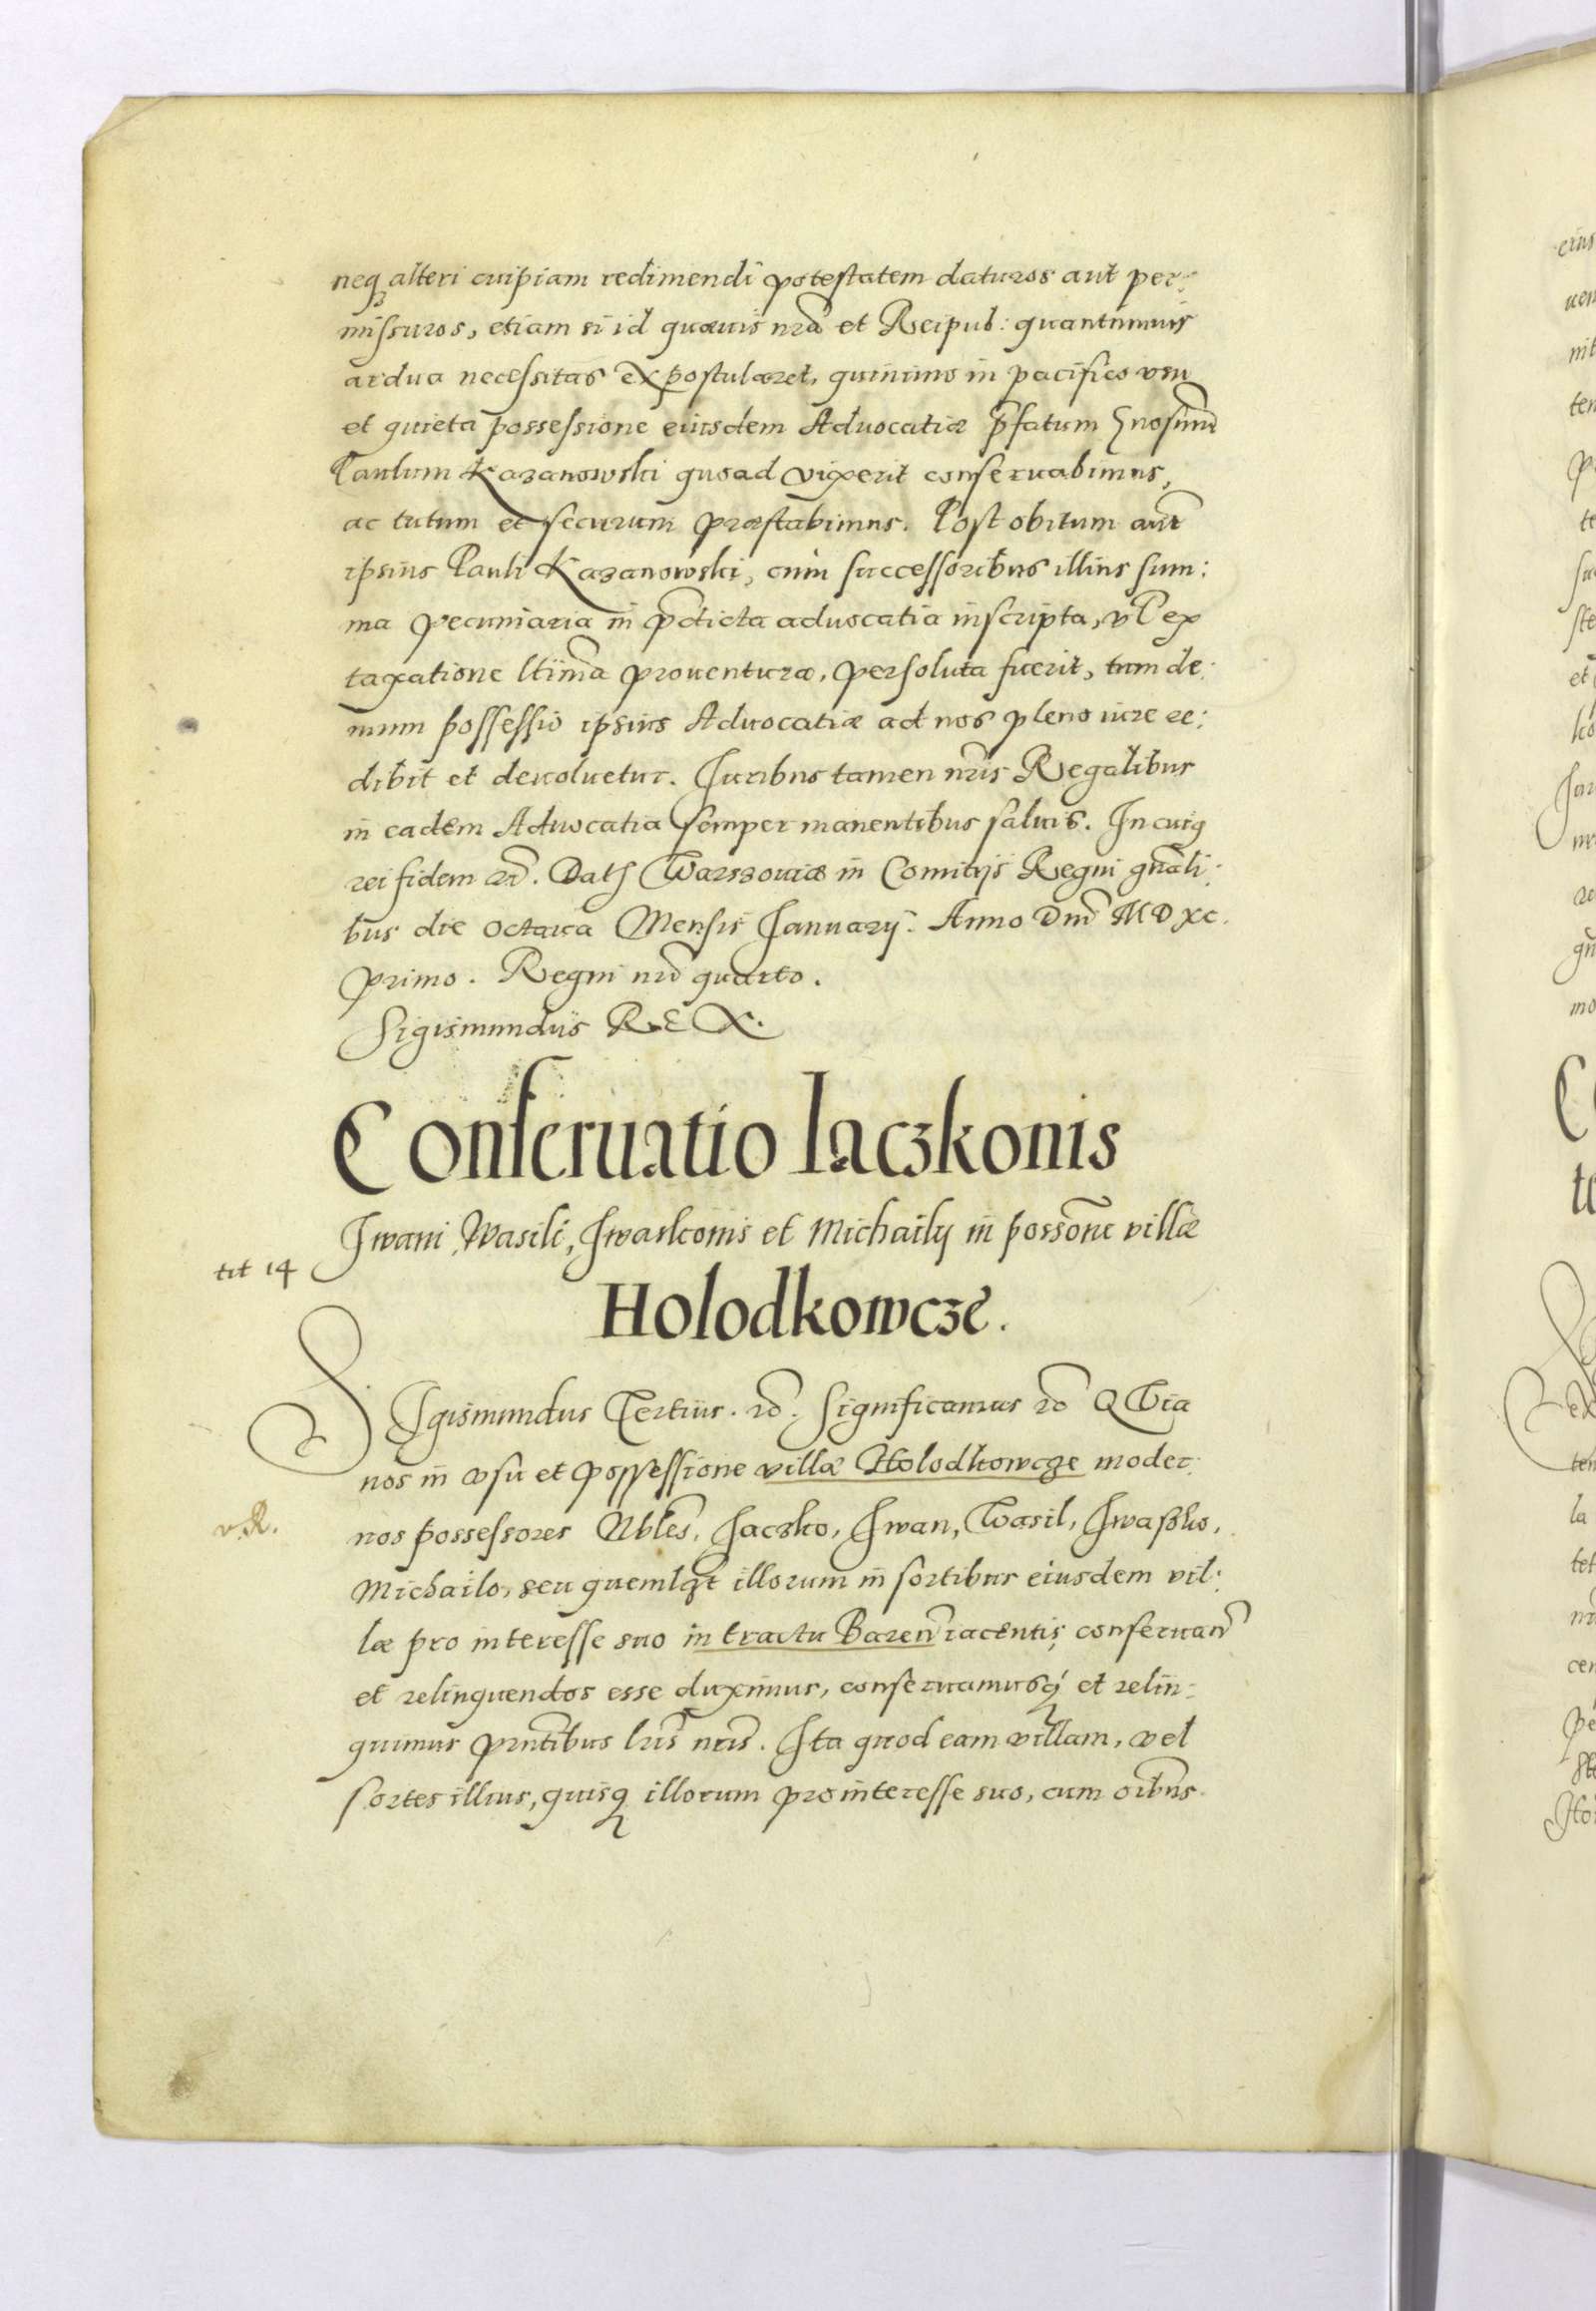 neq₃ alteri cuipiam redimendi potestatem daturos aut per:
missuros, etiam si id quævis nrã et Reipub: quantumvis
ardua necessitas expostularet, quinimo in pacifico usu
et quieta possessione eiusdem Advocatiæ p̃fatum Gnosum̃
Paulum Kazanowski quoad vixerit conservabimus,
ac tutum et securum præstabimus. Post obitum aut̃
ipsius Pauli Kazanowski, cum successoribus illius sum:
ma pecuniaria in p̃dicta advocatia inscripta, vl̃ ex
taxatione ltim̃a proventura, persoluta fuerit, tum de:
mum possessio ipsius Advocatiæ ad nos pleno iure re:
dibit et devoluetur. Juribus tamen nr̃is Regalibus
in eadem Advocatia semper manentibus salvis. In cuiꝯ
rei fidem etc̃. Datꝭ Warszoviæ in Comitijs Regni gñali:
bus die octava Mensis Januarij. Anno Dnĩ MDXC.
primo. Regni nrĩ quarto.
Sigismundus REX.
Conseruatio Iaczkonis
Iwani, Wasili, Iwaskonis et Michaily in possõne villæ
tit 14
Holodkowcze.
SIgismundus Tertius. etc̃. Significamus etc̃ QVia
nos in usu et possessione villæ Holodkowcze moder:
v. R.
nos possessores Nbles̃, Jaczko, Iwan, Wasil, Iwaßko,
Michailo, seu quemlꝫt illorum in sortibus eiusdem vil:
læ pro interesse suo in tractu Bareñ iacentis, conseruañ
et relinquendos esse duximus, conservamusq́ et relin:
quimus pñtibus lrĩs nrĩs. Ita quod eam villam, vel
sortes illius, quisq illorum pro interesse suo, cum oĩbus